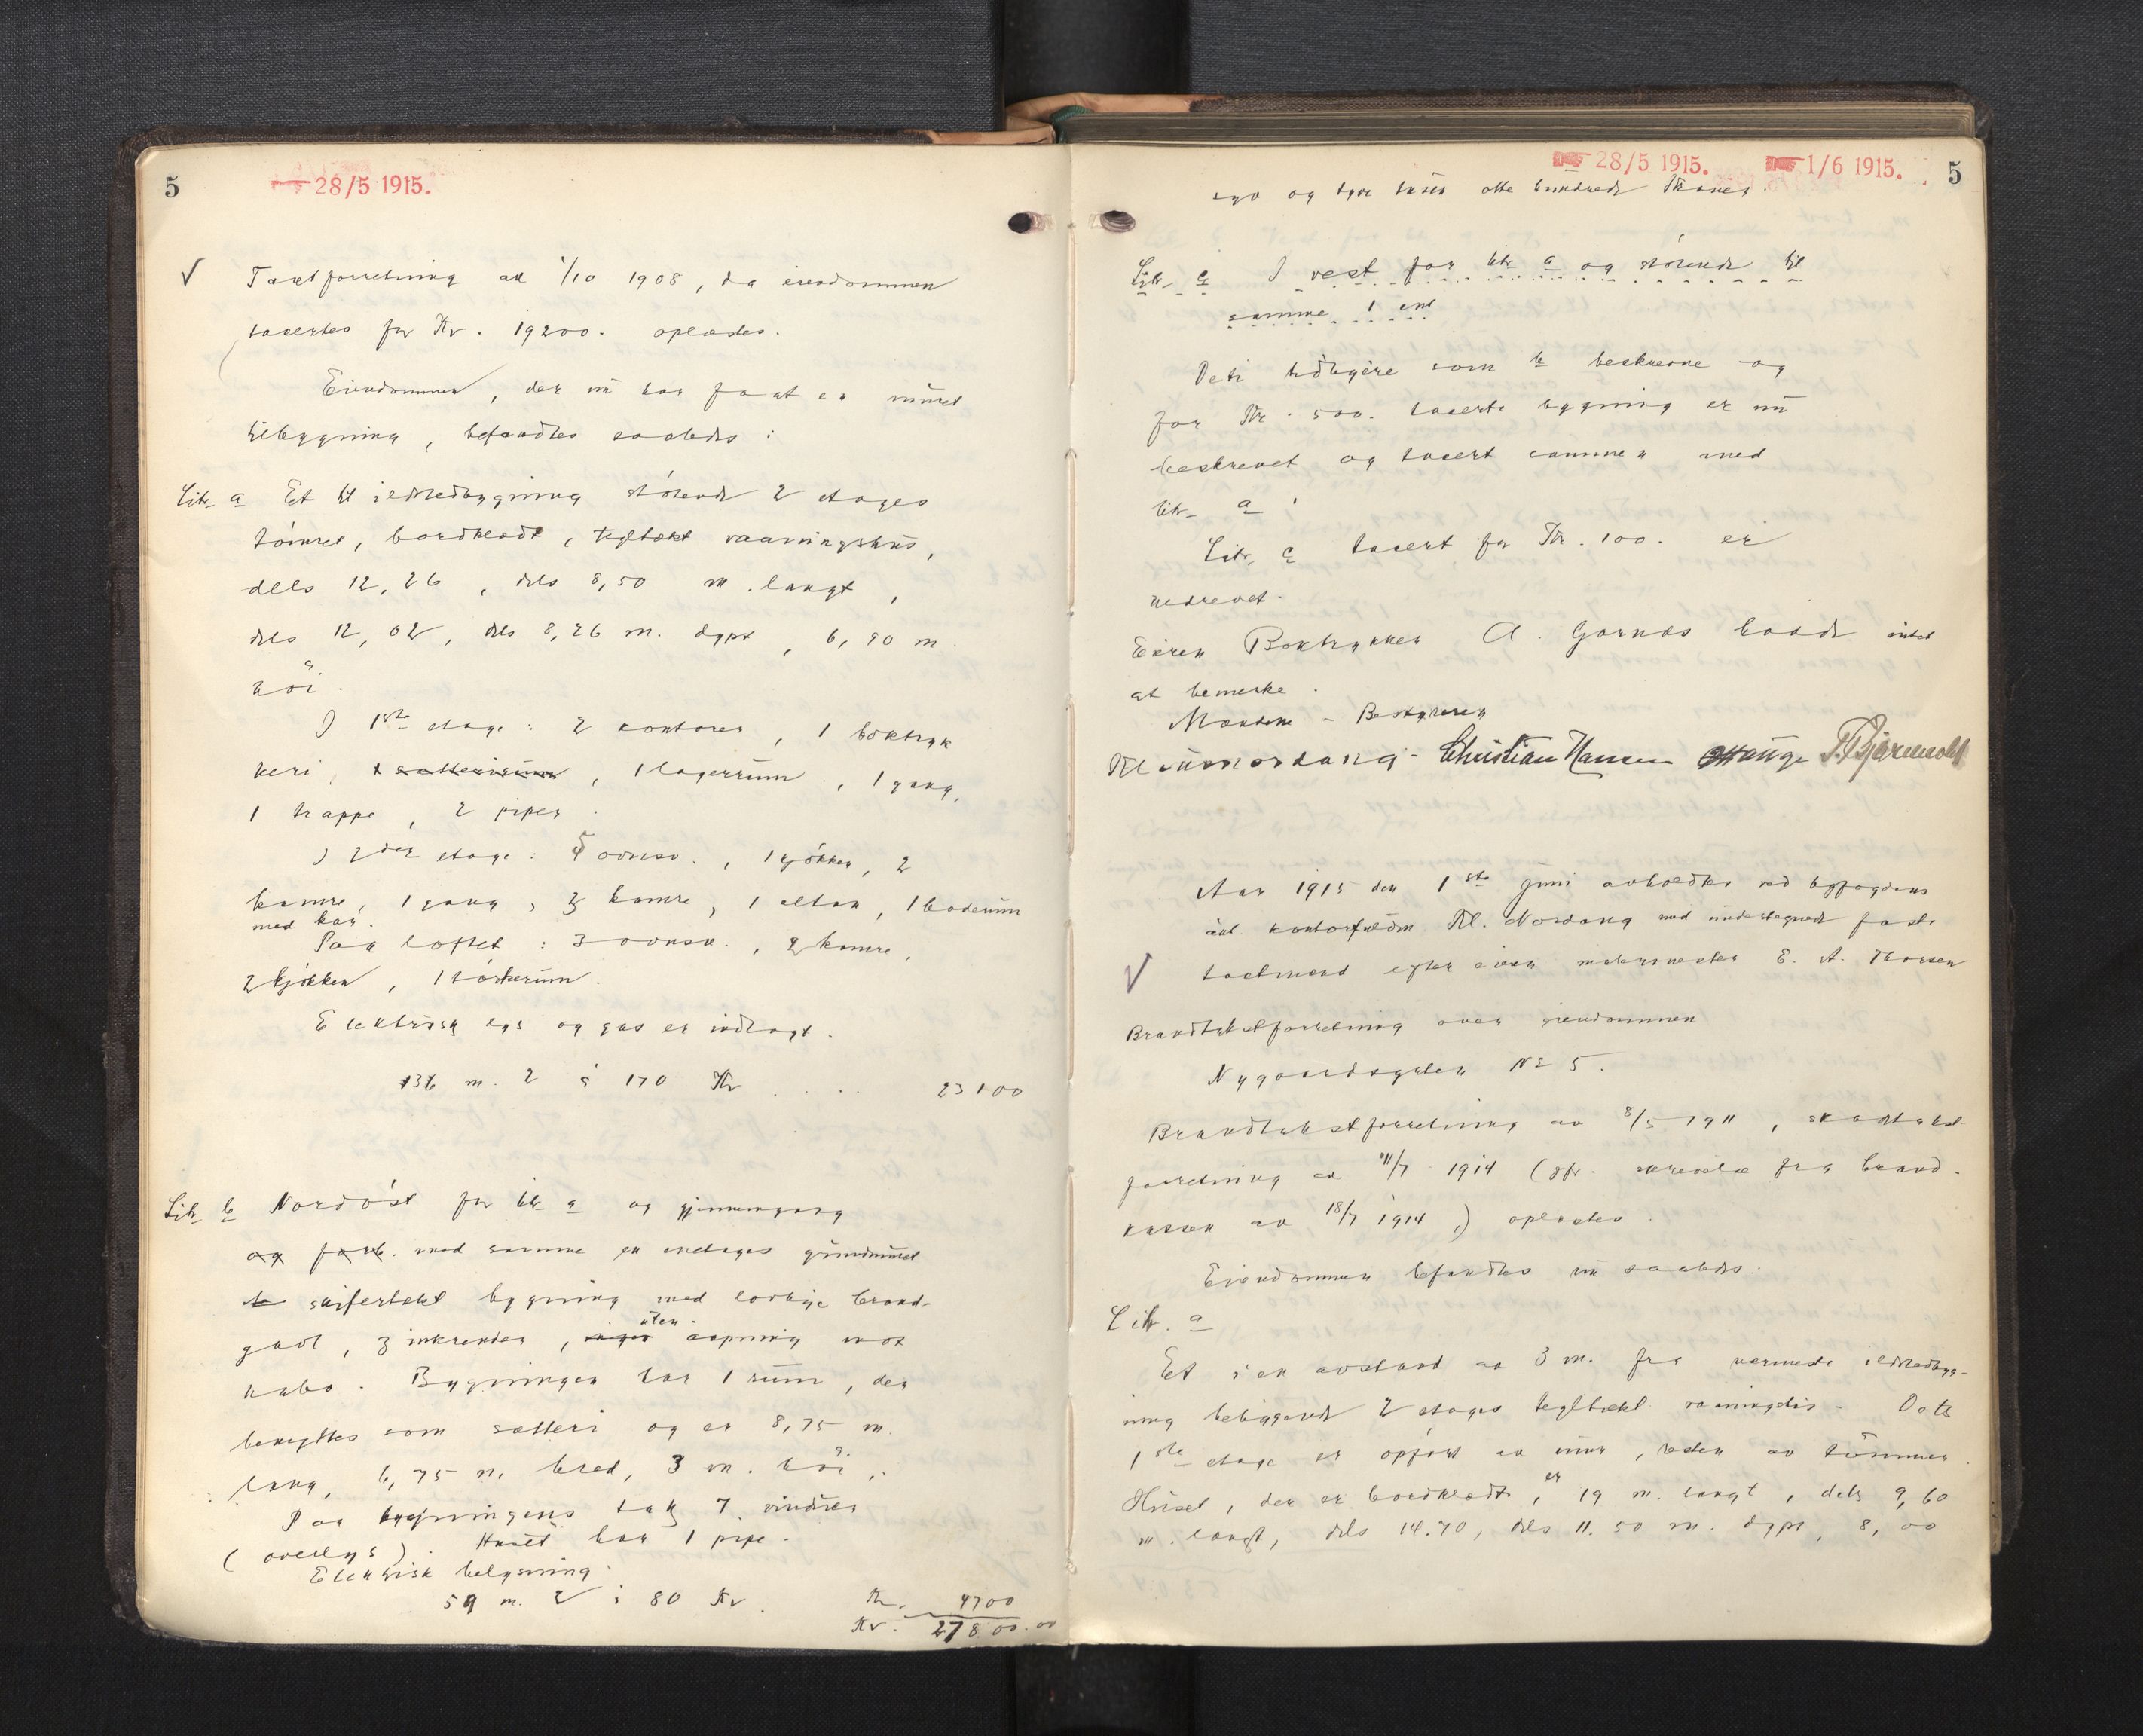 5
28/5 1915.
Taxtforretning av 1/10 1908, da eiendommen
taxertes for Kr. 19200. oplæstes.
Eiendommen, der nu har faat en muret
tilbygning, befandtes saaledes:
Litr. a Et til ildstedbygning stötende 2 etages
tömret, bordklædt, tegltækt vaaningshus,
dels 12,26, dels 8,50 m. langt,
dels 12,02, dels 8,26 m. dypt, 6,90 m.
höi.
I 1ste etage: 2 kontorer, 1 boktryk
keri, 1 sætterirum, 1 lagerrum, 1 gang,
1 trappe, 2 piper.
I 2den etage: 5 ovnsv., 1 kjökken, 2
kamre, 1 gang, 3 kamre, 1 altan, 1 baderum
med kar.
Paa loftet: 3 ovnsv., 2 kamre,
2 kjökken, 1 törkerum.
Elektrisk lys og gas er indlagt.
136 m. 2 á 170 Kr . . . 23100
Litr. b Nordöst for litr. a og gjennemgang
og forb. med samme en enetages grundmuret
skifertækt bygning med lovlige brand-
gavl, zinkrender, uten aapning mot
nabo. Bygningen har 1 rum, der
benyttes som sætteri og er 8,75 m.
lang, 6,75 m. bred, 3 m. höi.
Paa bygningens tak 7 vinduer
(overlys). Huset har 1 pipe.
Elektrisk belysning.
59 m. 2 á 80 Kr. Kr. 4700
Kr. 27800.00
28/5 1915. 1/6 1915. 5
syv og tyve tusen otte hundrede Kroner.
Litr. c I vest for litr. a og stötende til
samme 1 
Det tidligere som b beskrevne og
for Kr. 500. taxerte bygning er nu
beskrevet og taxert sammen med
litr. a.
Litr. c taxert for Kr. 100. er
nedrevet.
Eieren Boktrykker A. Garnæs hadde intet
at bemerke.
Mændene - Bestyreren
Kl. Nordang - Christian Hansen Hauge T. Bjørnevold
Aar 1915 den 1ste juni avholdtes ved byfogdens
aut. kontorfuldm. Kl. Nordang med undertegnede faste
taxtmænd efter eieren malermester E. A. Thorsen
Brandtakstforretning over eiendommen
Nygaardsgaten No 5.
Brandtakstforretning av 8/5 1911, skadetakst-
forretning av 11/7 1914 (jfr. skrivelse fra brand-
kassen av 18/7 1914,) oplæstes.
Eiendommen befandtes nu saaledes.
Litr. a
Et i en avstand av 3 m. fra nærmeste ildstedbyg-
ning beliggende 2 etages tegltækt vaaningshus. Dets
1ste etage er opfört av mur, resten av tömmer.
Huset, der er bordklædt, er 19 m. langt, dels 9,60
m. langt, dels 14.70, dels 11.50 m. dypt, 8,00